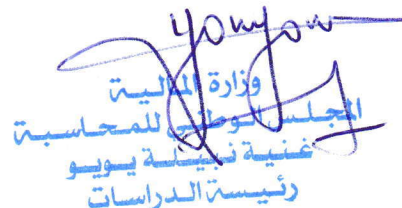 وزارة المالية
المجلس الوطني للمحاسبة
غنية نبيلة يويو
رئيسة الدراسات